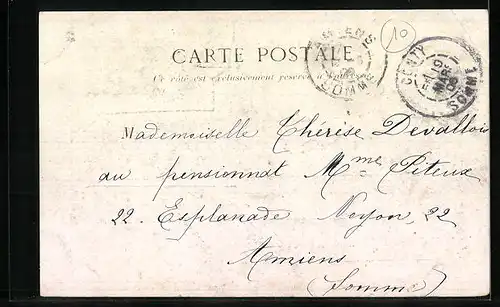 AMIENS
SOMME
10
CONTY
19
MARS
SOMME
CARTE POSTALE
Ce côté est exclusivement réservé à l'adresse
Mademoiselle Thérèse Devallois
au pensionnat Mme Piteux
22. Esplanade Noyon, 22
Amiens
(Somme)